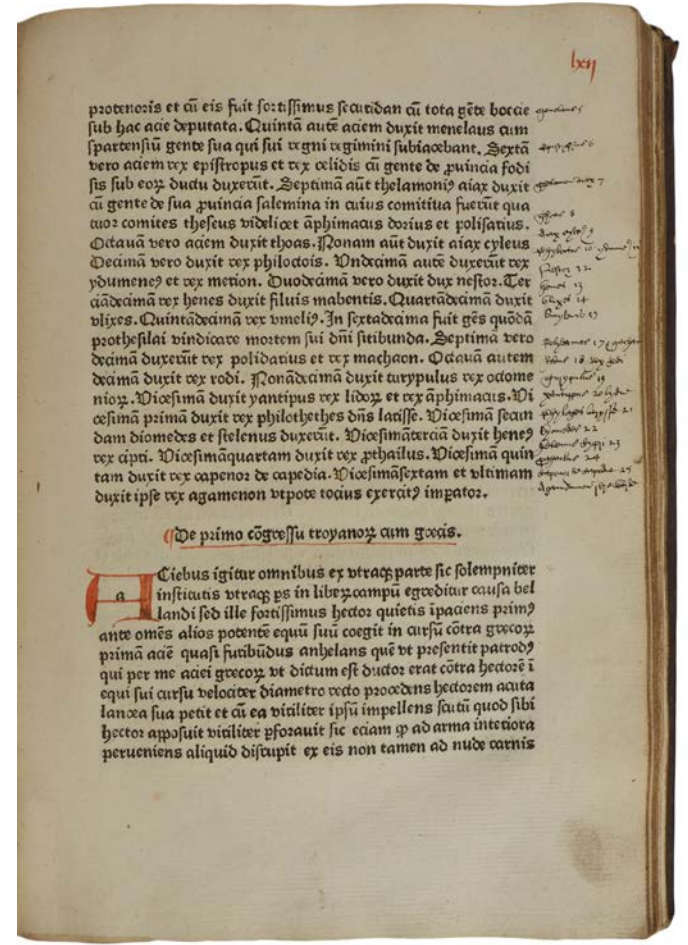 lxij
protenoris et cū eis fuit fortissimus secutidan cū tota gēte boecie
sub hac acie deputata. Quintā autē aciem duxit menelaus cum
spartensiū gente sua qui sui regni regimini subiacebant. Sextā
vero aciem rex epistropus et rex celidis cū gente de ꝓuincia fodi
sis sub eoꝝ ductu duxerūt. Septimā aūt thelamoniꝰ aiax duxit
cū gente de sua ꝓuincia salemina in cuius comitiua fuerūt qua
tuor comites theseus videlicet āphimacus dorius et polisarius.
Octauā vero aciem duxit thoas. Nonam aūt duxit aiax cyleus
Decimā vero duxit rex philoctois. Vndecimā autē duxerūt rex
ydumeneꝰ et rex merion. Duodecimā vero duxit dux nestor. Ter
ciādecimā rex henes duxit filuis mabentis. Quartādecimā duxit
vlixes. Quintādecimā rex vmeliꝰ. In sextadecima fuit gēs quōdā
prothesilai vindicare mortem sui dn̄i sitibunda. Septimā vero
decimā duxerūt rex polidarius et rex machaon. Octauā autem
decimā duxit rex rodi. Nonādecimā duxit turypulus rex octome
nioꝝ. Vicesimā duxit yantipus rex lidoꝝ et rex āphimacus. Vi
cesimā primā duxit rex philothethes dn̄s latisse. Vicesimā secun
dam diomedes et stelenus duxerūt. Vicesimāterciā duxit heneꝰ
rex cipri. Vicesimāquartam duxit rex ꝓthailus. Vicesimā quin
tam duxit rex capenor de capedia. Vicesimāsextam et vltimam
duxit ipse rex agamenon vtpote tocius exercitꝰ imꝑator.
De primo cōgressu troyanoꝝ cum grecis.
ACiebus igitur omnibus ex vtraqꝫ parte sic solempniter
institutis vtraqꝫ ꝑs in liberꝝ campū egreditur causa bel
landi sed ille fortissimus hector quietis īpaciens primꝰ
ante omēs alios potentē equū suū coegit in cursū cōtra grecoꝝ
primā aciē quasi furibūdus anhelans quē vt presentit patrodꝰ
qui per me aciei grecoꝝ vt dictum est ductor erat cōtra hectorē ī
equi sui cursu velociter diametro recto procedens hectorem acuta
lancea sua petit et cū ea viriliter ipsū impellens scutū quod sibi
hector apposuit viriliter ꝑforauit sic eciam ꝙ ad arma interiora
perueniens aliquid disrupit ex eis non tamen ad nude carnis